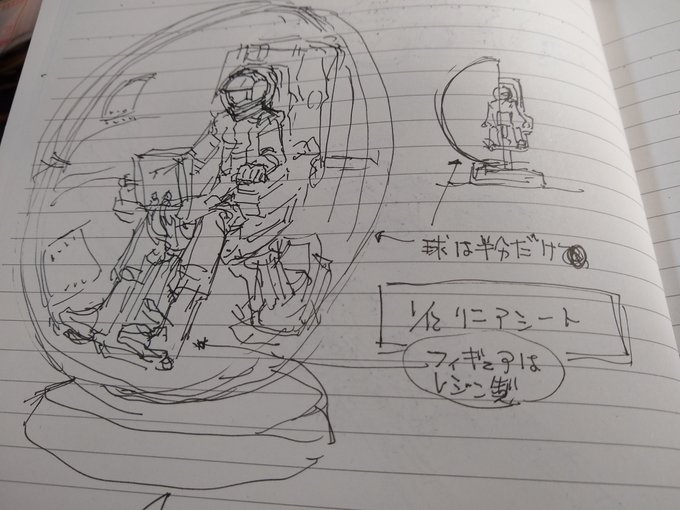 球は半分だけ
1/12 リニアシート
フィギュアは
レジン製